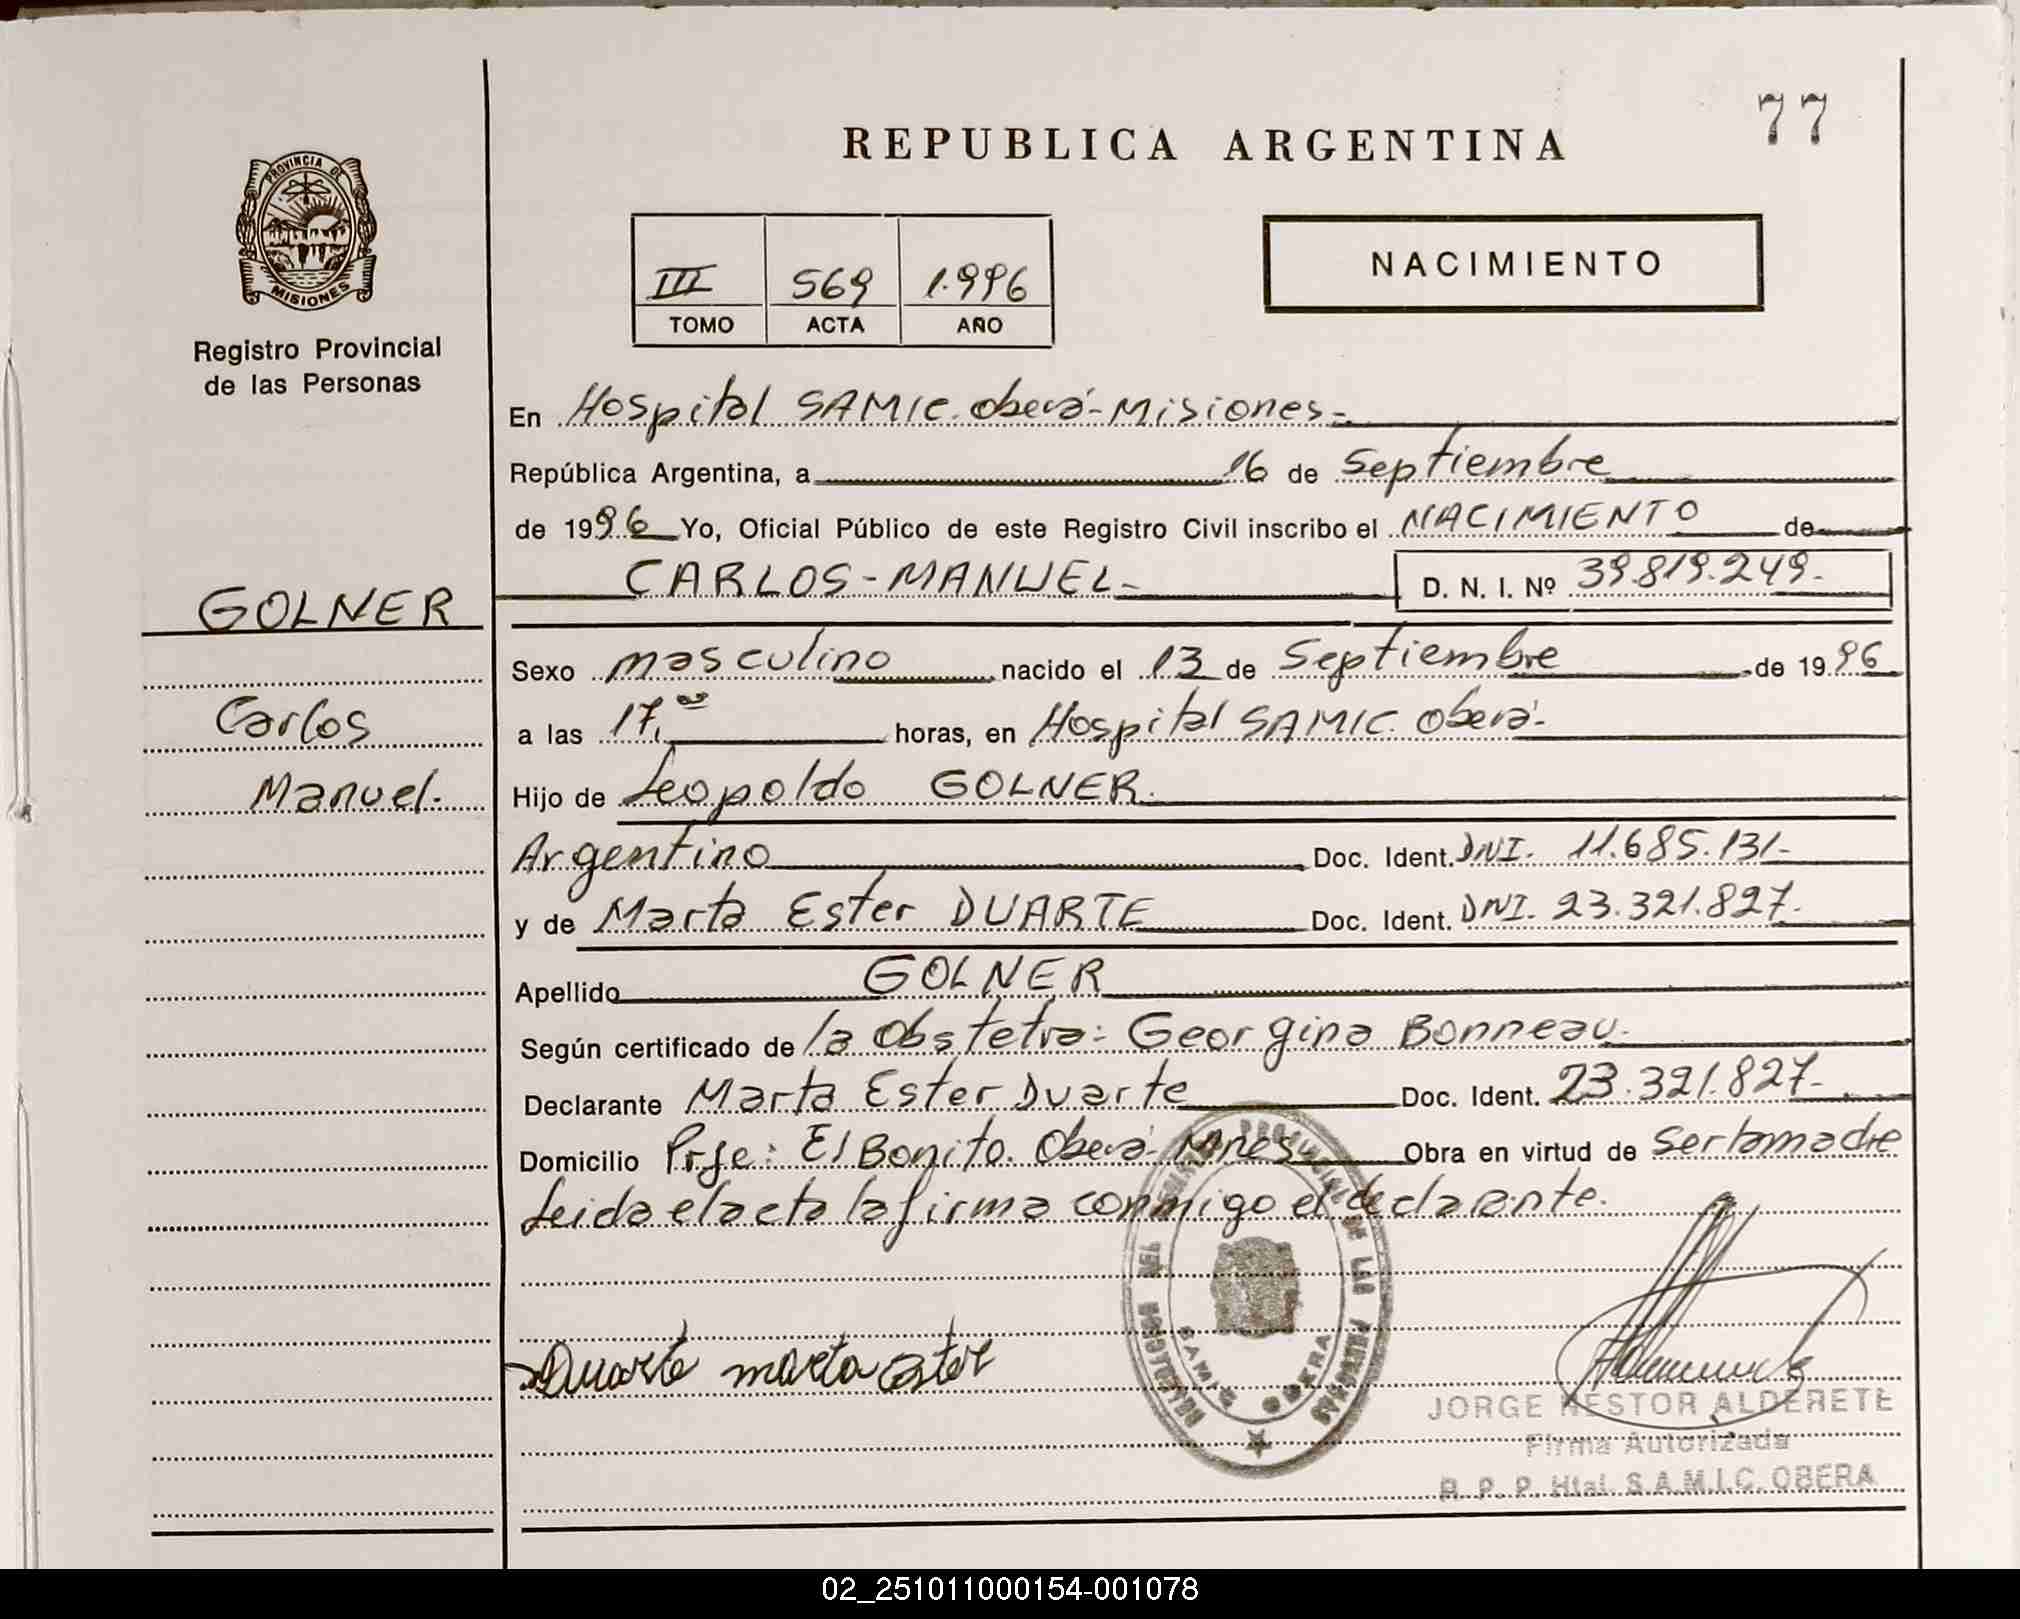 77
REPUBLICA ARGENTINA
PROVINCIA DE
MISIONES
Registro Provincial
de las Personas
III 569 1.996
TOMO ACTA AÑO
NACIMIENTO
En Hospital SAMIC. Oberá-Misiones-
República Argentina, a 16 de Septiembre
de 1996 Yo, Oficial Público de este Registro Civil inscribo el NACIMIENTO de
CARLOS-MANUEL- D. N. I. Nº 39.819.249.-
GOLNER
Carlos
Manuel.
Sexo masculino nacido el 13 de Septiembre de 1996
a las 17,00 horas, en Hospital SAMIC. Oberá-
Hijo de Leopoldo GOLNER.
Argentino Doc. Ident. DNI. 11.685.131-
y de Marta Ester DUARTE Doc. Ident. DNI. 23.321.827.-
Apellido GOLNER
Según certificado de la Obstetra: Georgina Bonneau.
Declarante Marta Ester Duarte Doc. Ident. 23.321.827-
Domicilio Prje: El Bonito. Oberá- Mnes Obra en virtud de ser la madre
Leida el acta la firma conmigo el declarante.
Duarte marta ester
PROVINCIAL DE LAS PERSONAS
SAMIC OBERA
JORGE NESTOR ALDERETE
Firma Autorizada
R. P. P. Htal. S.A.M.I.C. OBERA
02_251011000154-001078